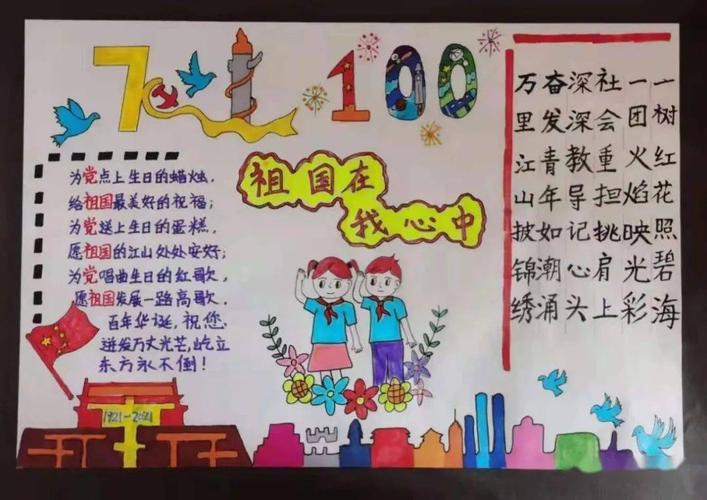 7 1 100
祖国在
我心中
为党点上生日的蜡烛,
给祖国最美好的祝福;
为党送上生日的蛋糕,
愿祖国的江山处处安好;
为党唱曲生日的红歌,
愿祖国发展一路高歌,
百年华诞,祝您
迸发万丈光芒,屹立
东方永不倒!
一树红花照碧海
一团火焰映光彩
社会重担挑肩上
深深教导记心头
奋发青年如潮涌
万里江山披锦绣
1921-2021